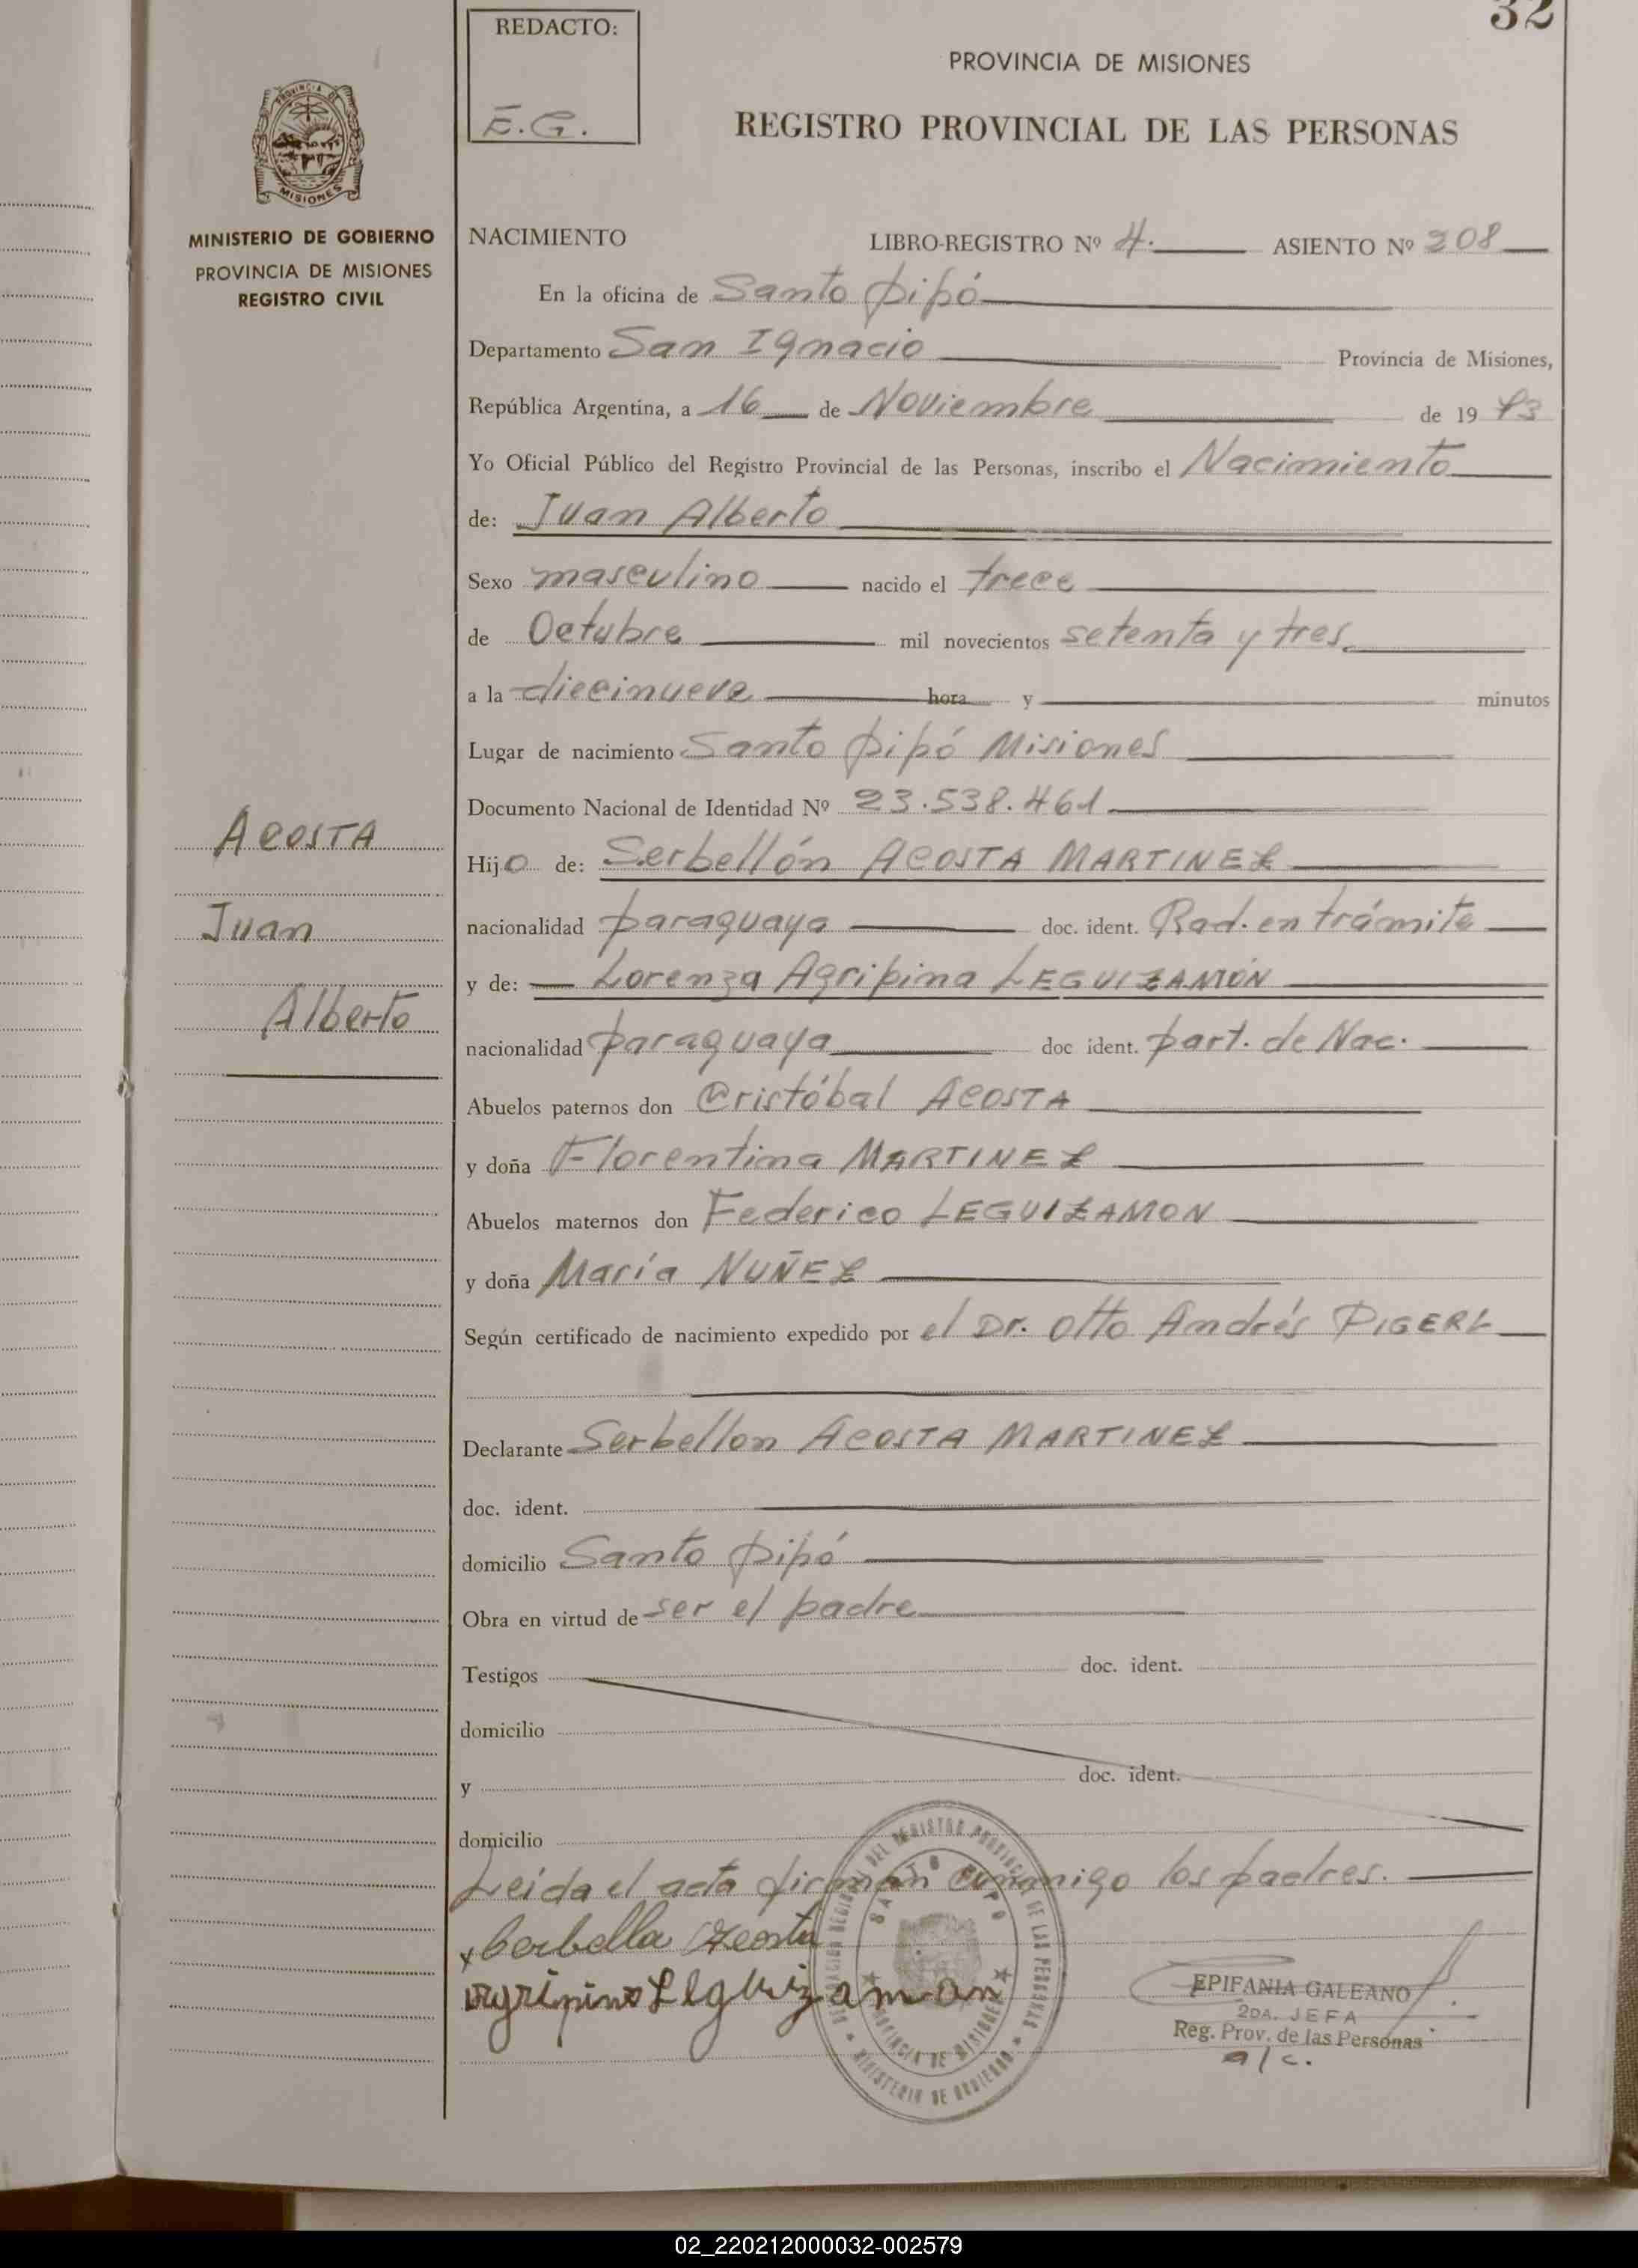 32
REDACTO:
E.G.
PROVINCIA DE MISIONES
REGISTRO PROVINCIAL DE LAS PERSONAS
MISIONES
MINISTERIO DE GOBIERNO
PROVINCIA DE MISIONES
REGISTRO CIVIL
NACIMIENTO LIBRO-REGISTRO Nº 4. ASIENTO Nº 208
En la oficina de Santo pipó
Departamento San Ignacio Provincia de Misiones,
República Argentina, a 16 de Noviembre de 19 73
Yo Oficial Público del Registro Provincial de las Personas, inscribo el Nacimiento
de: Juan Alberto
Sexo masculino nacido el trece
de Octubre mil novecientos setenta y tres
a la diecinueve hora y minutos
Lugar de nacimiento Santo pipó Misiones
Documento Nacional de Identidad Nº 23.538.461
ACOSTA
Juan
Alberto
Hijo de: Serbellón ACOSTA MARTINEZ
nacionalidad paraguaya doc. ident. Rad. en trámite
y de: Lorenza Agripina LEGUIZAMÓN
nacionalidad paraguaya doc ident. part. de Nac.
Abuelos paternos don Cristóbal ACOSTA
y doña Florentina MARTINEZ
Abuelos maternos don Federico LEGUIZAMON
y doña María NUÑEZ
Según certificado de nacimiento expedido por el Dr. Otto Andrés PIGERL
Declarante Serbellon ACOSTA MARTINEZ
doc. ident.
domicilio Santo pipó
Obra en virtud de ser el padre
Testigos doc. ident.
domicilio
y doc. ident.
domicilio
Leida el acta firman conmigo los padres.
Acosta
EPIFANIA GALEANO
2DA. JEFA
Reg. Prov. de las Personas
a/c.
SANTO PIPO
PROVINCIA DE MISIONES
MINISTERIO DE GOBIERNO
02_220212000032-002579